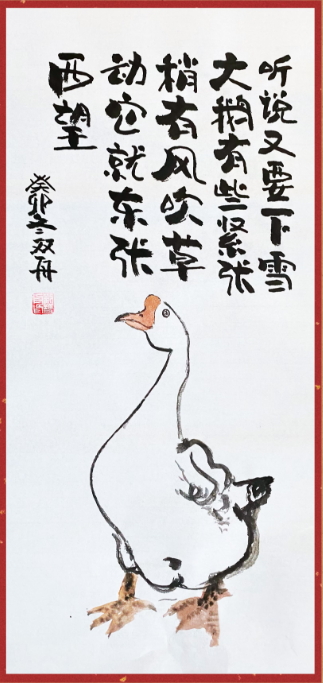 听说又要下雪
大鹅有些紧张
稍有风吹草
动它就东张
西望
癸卯冬双舟